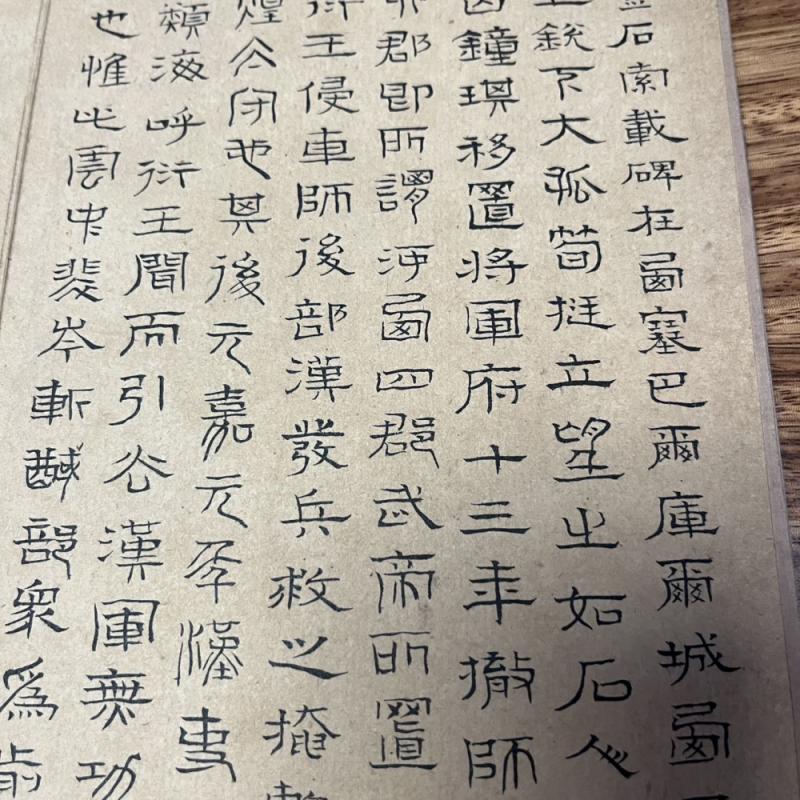 石索載碑在卥塞巴爾庫爾城卥
上銳下大孤筍挺立望之如石人
鐘琪移置將軍府十三年撤師
郡即所謂河卥四郡武帝所置
衍王侵車師後部漢發兵救之掩
煌也其後元嘉元年漢吏
類海呼衍王聞而引去漢軍無功
也惟此雲中裴岑斬馘部眾為前